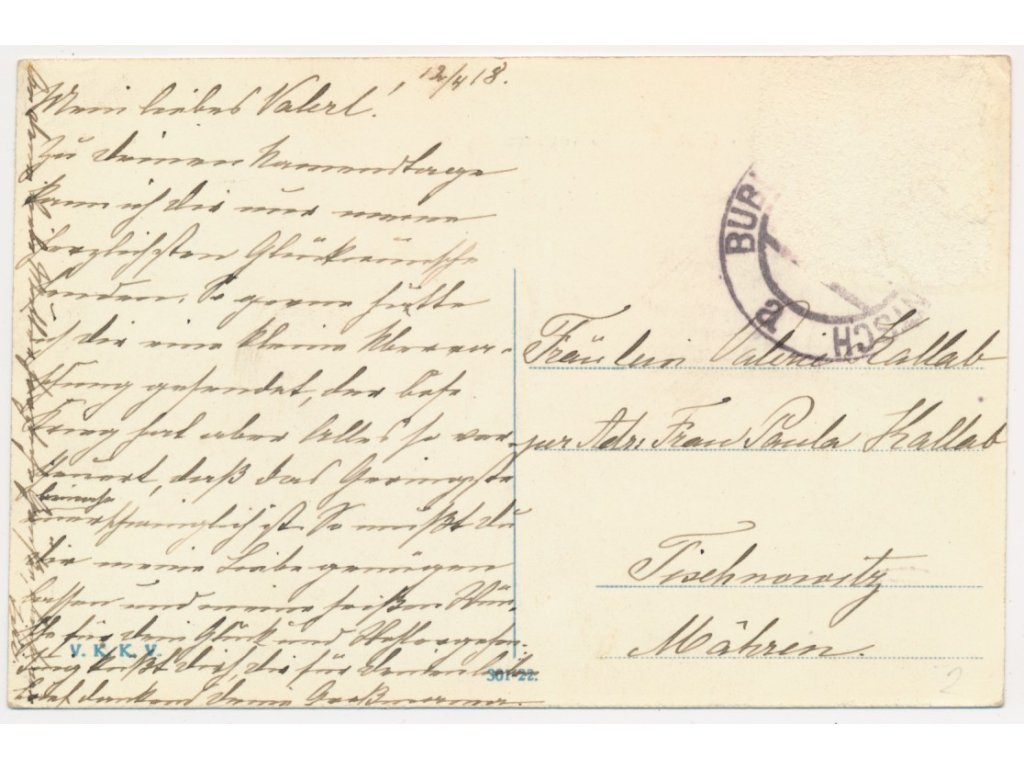 12/4 18.
Mein liebes Valerl!
Zu deinem Namenstage
kann ich dir nur meine
herzlichsten Glückwünsche
senden. So gerne hätte
ich dir eine kleine Überra-
schung gesendet, der böse
Krieg hat aber Alles so ver-
teuert, daß das Geringste
beinahe
unerschwinglich ist. So mußt du
dir meine Liebe genügen
lassen und meine heißen Wün-
sche für dein Glück und Wohlergehen
küßt dich, die für deinen
Brief dankend deine Großmama.
BUR
ISCH
a
Fräulein Valerie Kallab
per Adr. Frau Paula Kallab
Tischnowitz
Mähren.
V. K. K. V.
301-22.
2